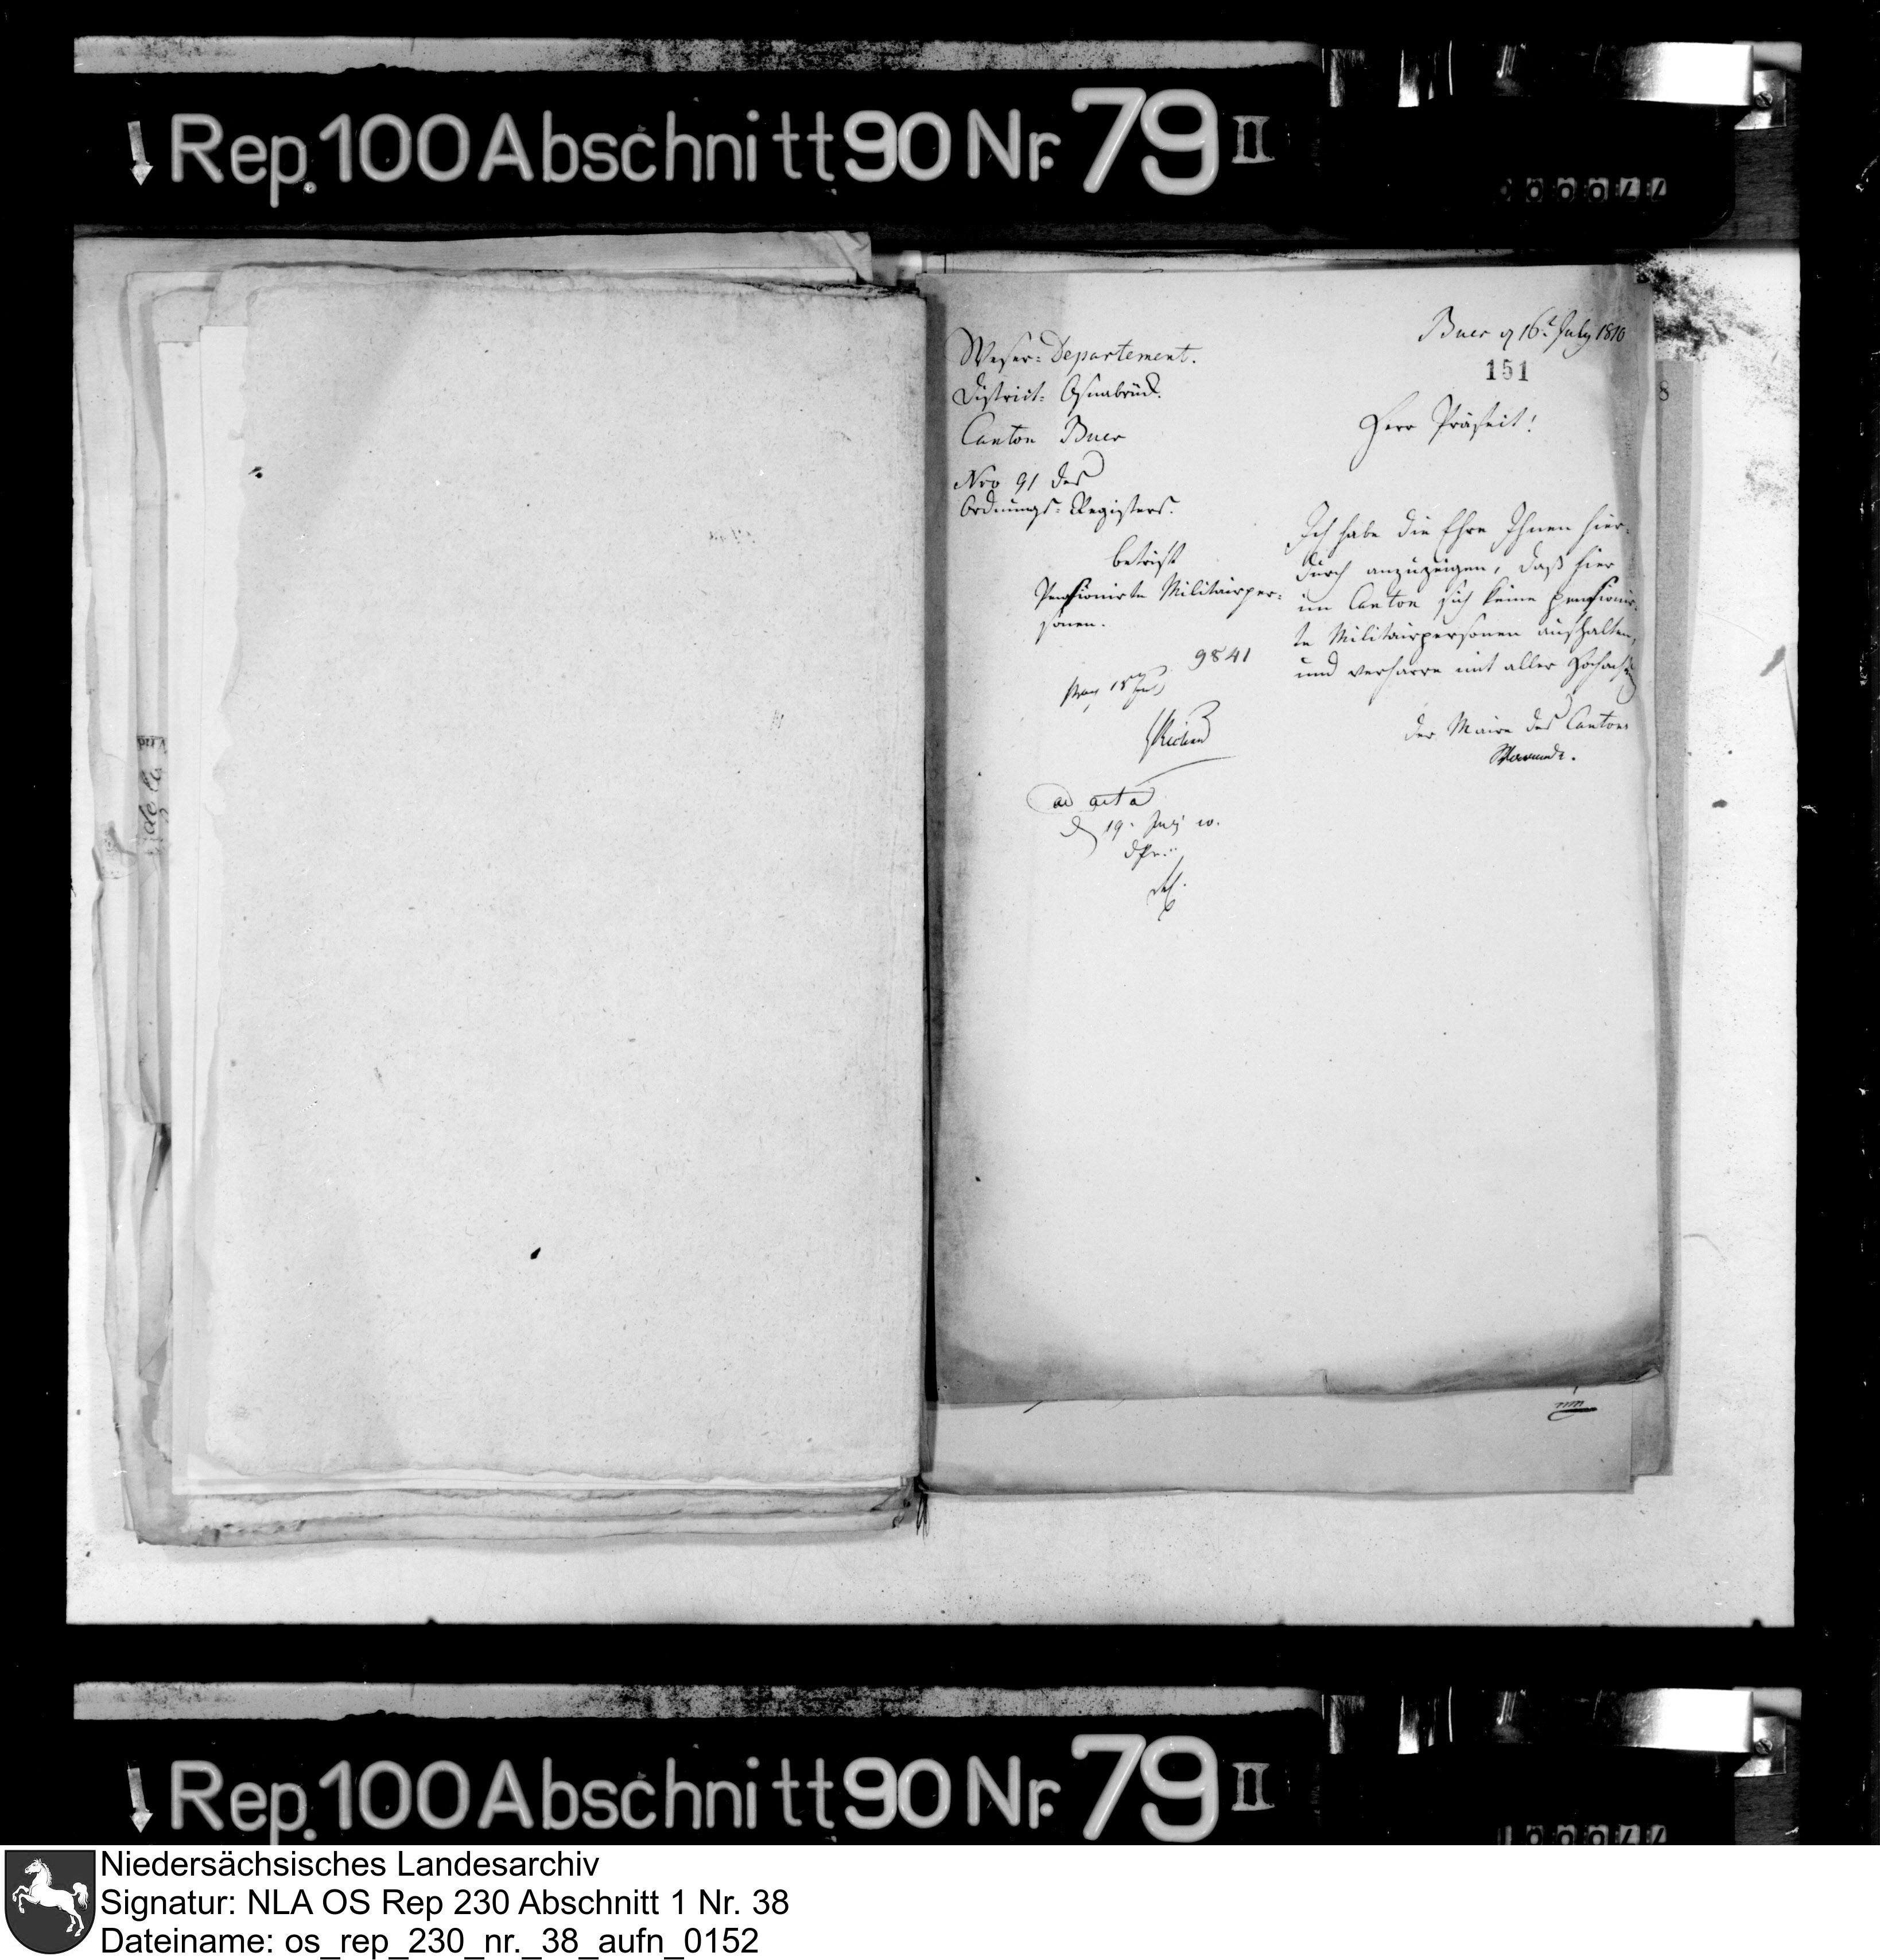 Rep. 100 Abschnitt 90 Nr. 79 II
Buer d 16t July 1810
151
8
Weser-Departement.
District- Osnabrück.
Canton Buer
Nro 91 des
Ordnungs-Registers.
Herr Präfeit!
betrifft
Pensionirte Militairper-
sonen.
9841
Ich habe die Ehre Ihnen hier-
durch anzuzeigen, daß hier
im Canton sich keine pensionir-
te Militairpersonen aufhalten,
und verharre mit aller Hochach
der Maire des Cantons
ad acta
d 19. July 10.
Rep. 100 Abschnitt 90 Nr. 79 II
Niedersächsisches Landesarchiv
Signatur: NLA OS Rep 230 Abschnitt 1 Nr. 38
Dateiname: os_rep_230_nr._38_aufn_0152